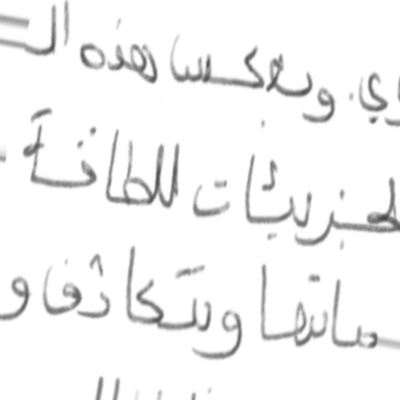 وي. وبعكسا هذه الـ
لجزيئات للطاقة
ماتها وتتكاثف و